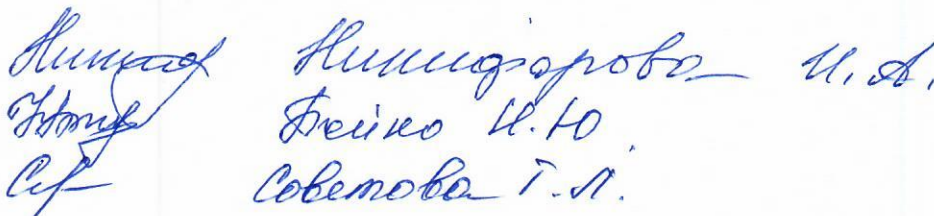 Никифорова И. А.
Бойко Н. Ю.
Советова Т. Л.